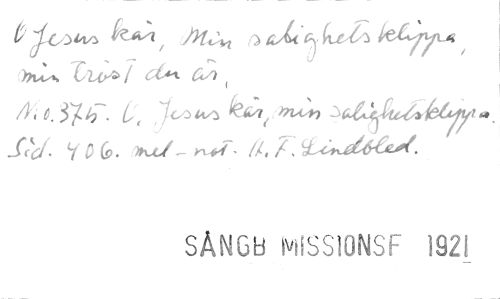 O Jesus kär, Min salighetsklippa,
min tröst du är,
N:o. 375. O, Jesus kär, min salighetsklippa.
Sid. 406. mel-not. A. F. Lindbled.
SÅNGB MISSIONSF 1921